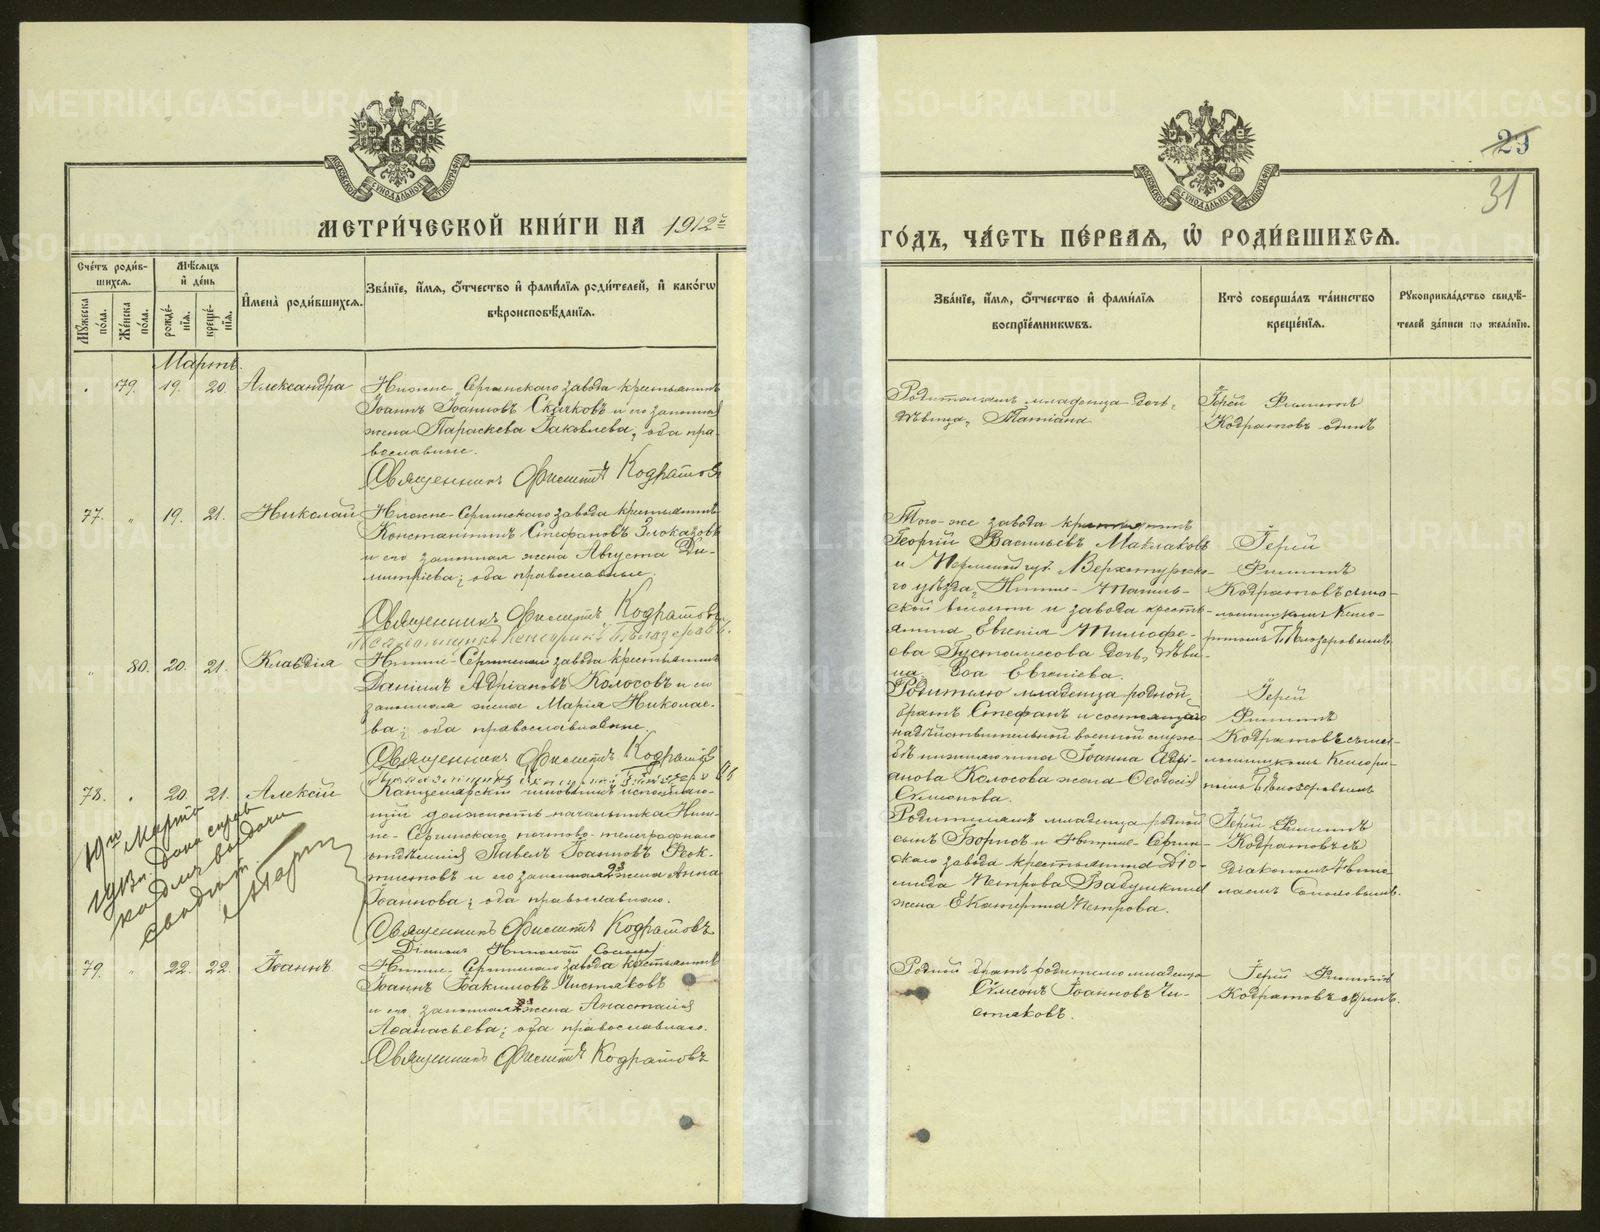 МЕТРИ́ЧЕСКОЙ КНИ́ГИ НА 1912й
ГО́ДЪ, ЧА́СТЬ ПЕ́РВАЯ, Ѡ РОДИ́ВШИХСЯ.
23
31
Сче́тъ роди́в-
шихся.
Мѣ́сяцъ
и́ де́нь
Му́жеска
по́ла.
Же́нска
по́ла.
рожде́-
нїя.
креще́-
нїя.
И́мена̀ роди́вшихся.
Зва́нїе, и́мя, ѻ́тчество и́ фами́лїя роди́телей, и́ како́гѡ
вѣроисповѣ́данїя.
Зва́нїе, и́мя, ѻ́тчество и́ фами́лїя
воспрїе́мникѡвъ.
Кто̀ соверша́лъ та́инство
креще́нїя.
Рꙋкоприкла́дство свидѣ́-
телей за́писи по жела́нїю.
Мартъ.
79. 19. 20. Александра
Нижне-Сергинскаго завода крестьянинъ
Іоаннъ Іоанновъ Скачковъ и его законная
жена Параскева Іаковлева, оба пра-
вославные.
Священникъ Филиппъ Кодратовъ
Родителямъ младенца дочь,
дѣвица, Татіана
Іерей Филиппъ
Кодратовъ одинъ
77. " 19. 21. Николай
Нижне-Сергинскаго завода крестьянинъ
Константинъ Стефановъ Злоказовъ
и его законная жена Августа Ди-
митріева; оба православные.
Священникъ Филиппъ Кодратовъ
Того-же завода крестьянинъ
Георгій Васильевъ Маклаковъ
и Пермской губ. Верхотурска-
го уѣзда, Нижне-Тагиль-
ской волости и завода кресть-
янина Евгенія Тимофе-
ева дочь, дѣви-
ца Зоа Евгеніева.
Іерей
Филиппъ
Кодратовъ съ пса-
ломщикомъ
" 80. 20. 21. Клавдія
Нижне-Сергинскаго завода крестьянинъ
Даніилъ Адріановъ Колосовъ и его
законная жена Марія Николае-
ва; оба православные.
Священникъ Филиппъ Кодратовъ
Родителю младенца родной
братъ Стефанъ и состоящаго
на дѣйствительной военной служ-
бѣ нижняго чина Іоанна Адрі-
анова Колосова жена Ѳеодосія
Симеонова.
Іерей
Филиппъ
Кодратовъ съ пса-
ломщикомъ
78. " 20. 21. Алексій
Канцелярскій чиновникъ исполняю-
щій должность начальника Ниж-
не-Сергинскаго почтово-телеграфнаго
отдѣленія Павелъ Іоанновъ Ѳеок-
тистовъ и его законная жена Анна
Іоаннова; оба православнаго.
Священникъ Филиппъ Кодратовъ
Діаконъ Николай
Родителямъ младенца родной
сынъ Борисъ и Нижне-Сергин-
скаго завода крестьянина Діо-
мида Петрова Бабушкина
жена Екатерина Петрова.
Іерей Филиппъ
Кодратовъ съ
діакономъ Нико-
лаемъ
19го Марта
1913г. дана справ-
ка для выдачи
79. " 22. 22. Іоаннъ.
Нижне-Сергинскаго завода крестьянинъ
Іоаннъ Іоакимовъ Чистяковъ
и его законная жена Анастасія
Аѳанасьева; оба православнаго.
Священникъ Филиппъ Кодратовъ
Родной братъ родителю младенца
Симеонъ Іоанновъ Чи-
стяковъ.
Іерей Филиппъ
Кодратовъ одинъ.
METRIKI.GASO-URAL.RU